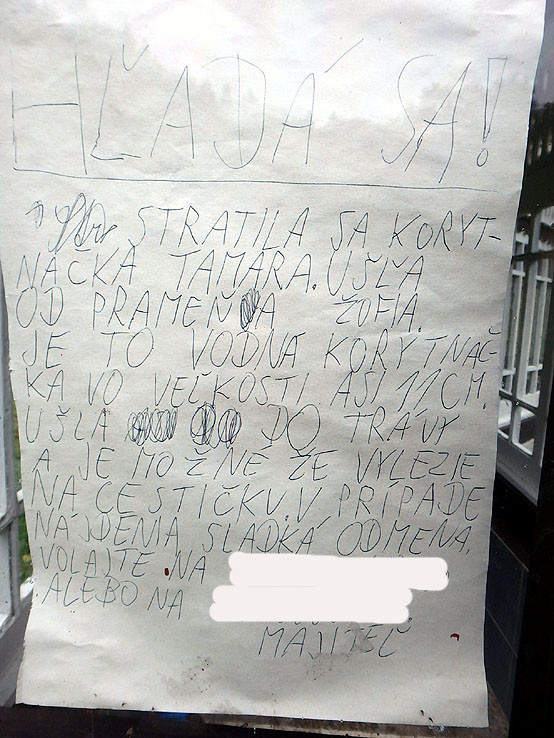 HĽADÁ SA!
STRATILA SA KORYT-
NAČKA TAMARA. UŠLA
OD PRAMEŇA ŽOFIA.
JE TO VODNÁ KORYTNAČ-
KA VO VEĽKOSTI ASI 11 CM.
UŠLA DO TRÁVY
A JE MOŽNÉ ŽE VYLEZIE
NA CESTIČKU. V PRÍPADE
NÁJDENIA SLADKÁ ODMENA.
VOLAJTE NA
ALEBO NA
MAJITEĽ